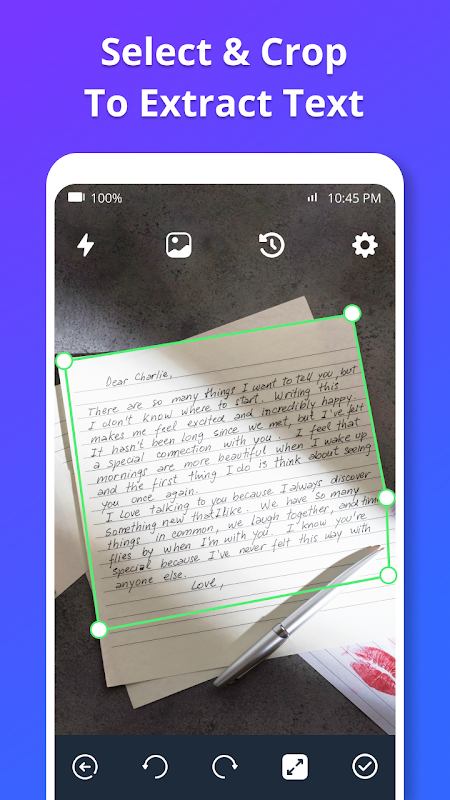 Select & Crop
To Extract Text
100%
10:45 PM
Dear Charlie,
There are so many things I want to tell you, but
I don't know where to start. Writing this
makes me feel excited and incredibly happy.
It hasn't been long since we met, but I've felt
a special connection with you. I feel that
mornings are more beautiful when I wake up
and the first thing I do is think about seeing
you once again.
I love talking to you because I always discover
something new that I like. We have so many
things in common, we laugh together, and time
flies by when I'm with you. I know you're
special because I've never felt this way with
anyone else.
Love,